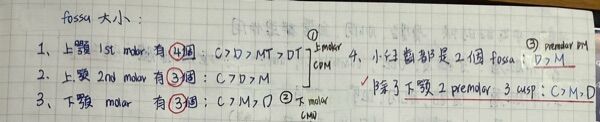 fossa 大小：
1、上顎 1st molar 有 4個：C>D>MT>DT
① 上molar CDM
2、上顎 2nd molar 有 3個：C>D>M
3、下顎 molar 有 3個：C>M>D
② 下molar CMD
4、小臼齒都是 2個 fossa：D>M
③ premolar DM
✓除了下顎 2 premolar 3 cusp：C>M>D